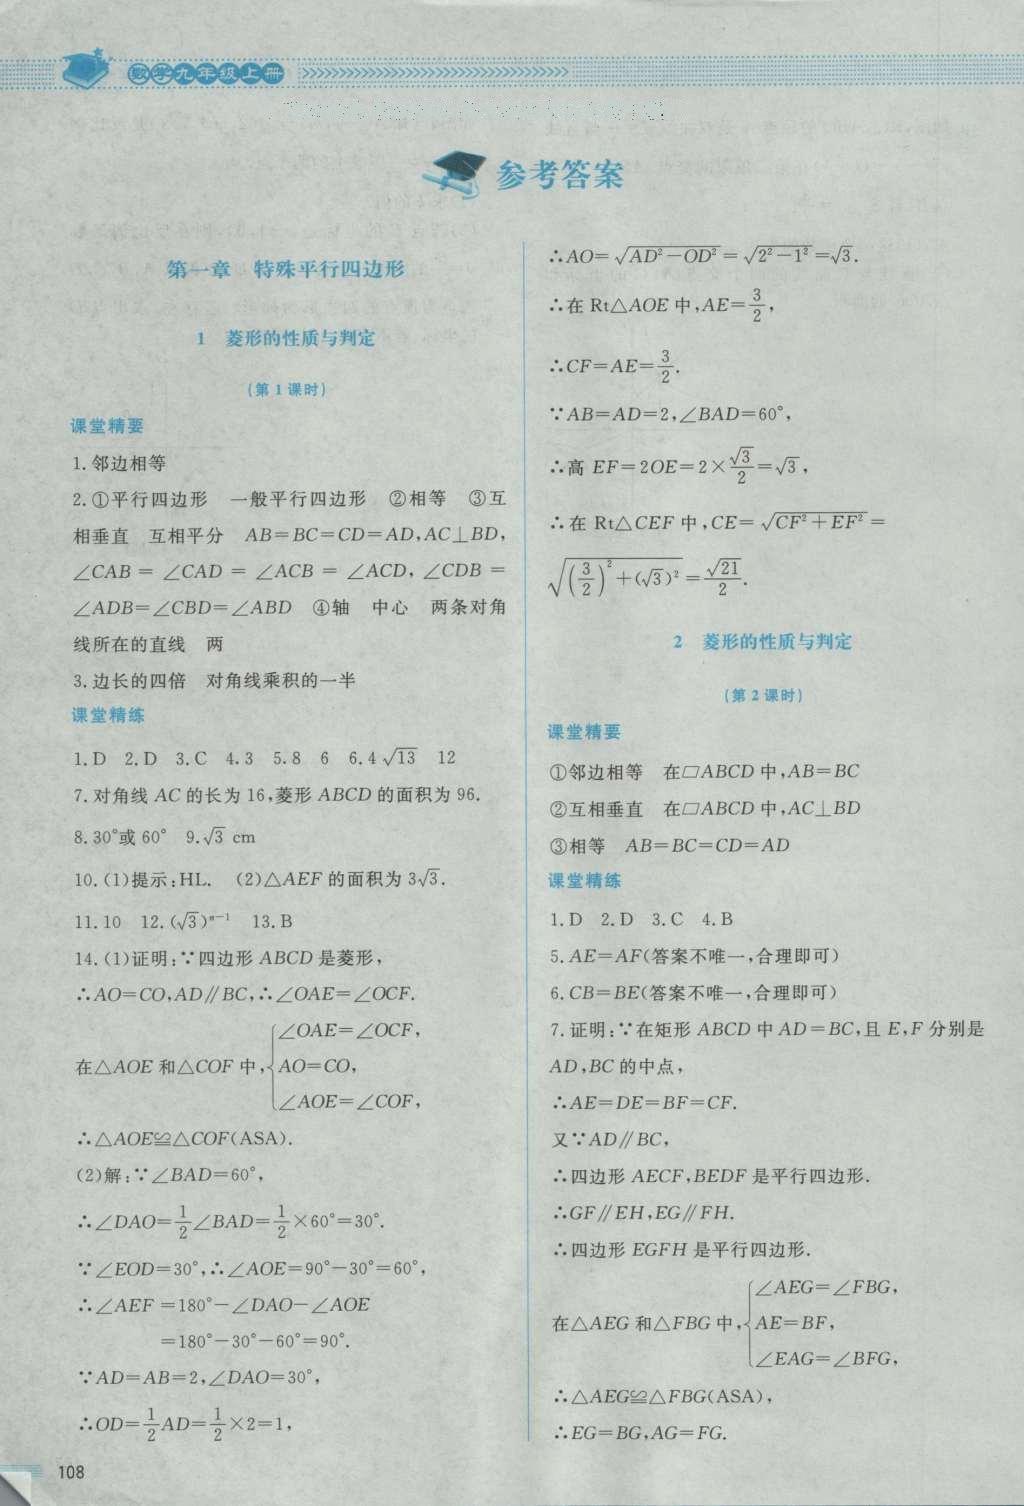 数学九年级上册
参考答案
第一章 特殊平行四边形
1 菱形的性质与判定
(第1课时)
课堂精要
1.邻边相等
2.①平行四边形 一般平行四边形 ②相等 ③互
相垂直 互相平分 AB=BC=CD=AD,AC⊥BD,
∠CAB=∠CAD=∠ACB=∠ACD,∠CDB=
∠ADB=∠CBD=∠ABD ④轴 中心 两条对角
线所在的直线 两
3.边长的四倍 对角线乘积的一半
课堂精练
1.D 2.D 3.C 4.3 5.8 6 6.4√13 12
7.对角线 AC 的长为 16,菱形 ABCD 的面积为 96.
8.30°或 60° 9.√3 cm
10.(1)提示:HL. (2)△AEF 的面积为 3√3.
11.10 12.(√3)ⁿ⁻¹ 13.B
14.(1)证明:∵四边形 ABCD 是菱形,
∴AO=CO,AD∥BC,∴∠OAE=∠OCF.
∠OAE=∠OCF,
在△AOE 和△COF 中,{AO=CO,
∠AOE=∠COF,
∴△AOE≌△COF(ASA).
(2)解:∵∠BAD=60°,
∴∠DAO=1/2∠BAD=1/2×60°=30°.
∵∠EOD=30°,∴∠AOE=90°−30°=60°,
∴∠AEF=180°−∠DAO−∠AOE
=180°−30°−60°=90°.
∵AD=AB=2,∠DAO=30°,
∴OD=1/2AD=1/2×2=1,
∴AO=√(AD²−OD²)=√(2²−1²)=√3.
∴在 Rt△AOE 中,AE=3/2,
∴CF=AE=3/2.
∵AB=AD=2,∠BAD=60°,
∴高 EF=2OE=2×√3/2=√3,
∴在 Rt△CEF 中,CE=√(CF²+EF²)=
√((3/2)²+(√3)²)=√21/2.
2 菱形的性质与判定
(第2课时)
课堂精要
①邻边相等 在▱ABCD 中,AB=BC
②互相垂直 在▱ABCD 中,AC⊥BD
③相等 AB=BC=CD=AD
课堂精练
1.D 2.D 3.C 4.B
5.AE=AF(答案不唯一,合理即可)
6.CB=BE(答案不唯一,合理即可)
7.证明:∵在矩形 ABCD 中 AD=BC,且 E,F 分别是
AD,BC 的中点,
∴AE=DE=BF=CF.
又∵AD∥BC,
∴四边形 AECF,BEDF 是平行四边形.
∴GF∥EH,EG∥FH.
∴四边形 EGFH 是平行四边形.
∠AEG=∠FBG,
在△AEG 和△FBG 中,{AE=BF,
∠EAG=∠BFG,
∴△AEG≌△FBG(ASA),
∴EG=BG,AG=FG.
108